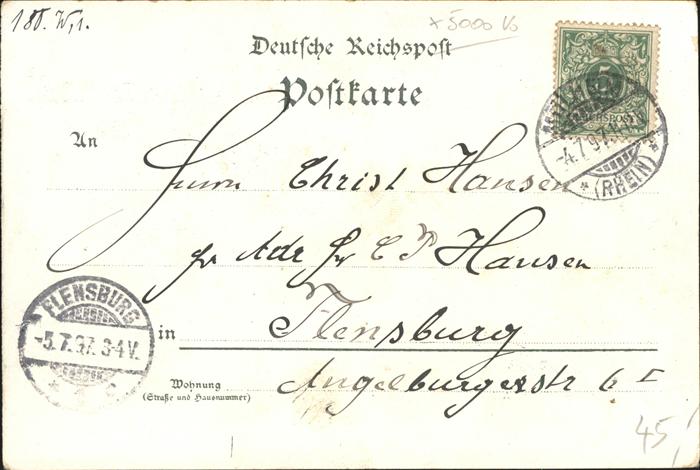 180. W, 1.
x 5000 Vs
Deutsche Reichspost
Postkarte
5
REICHSPOST
MÜLHEIM
-4.7.97.
* (RHEIN) *
An
Herrn Christ Hansen
pr Adr Hr C P Hansen
FLENSBURG
-5.7.97. 3-4V.
in
Flensburg
Wohnung
(Straße und Hausnummer)
Angelburgerstr 6 I
45,